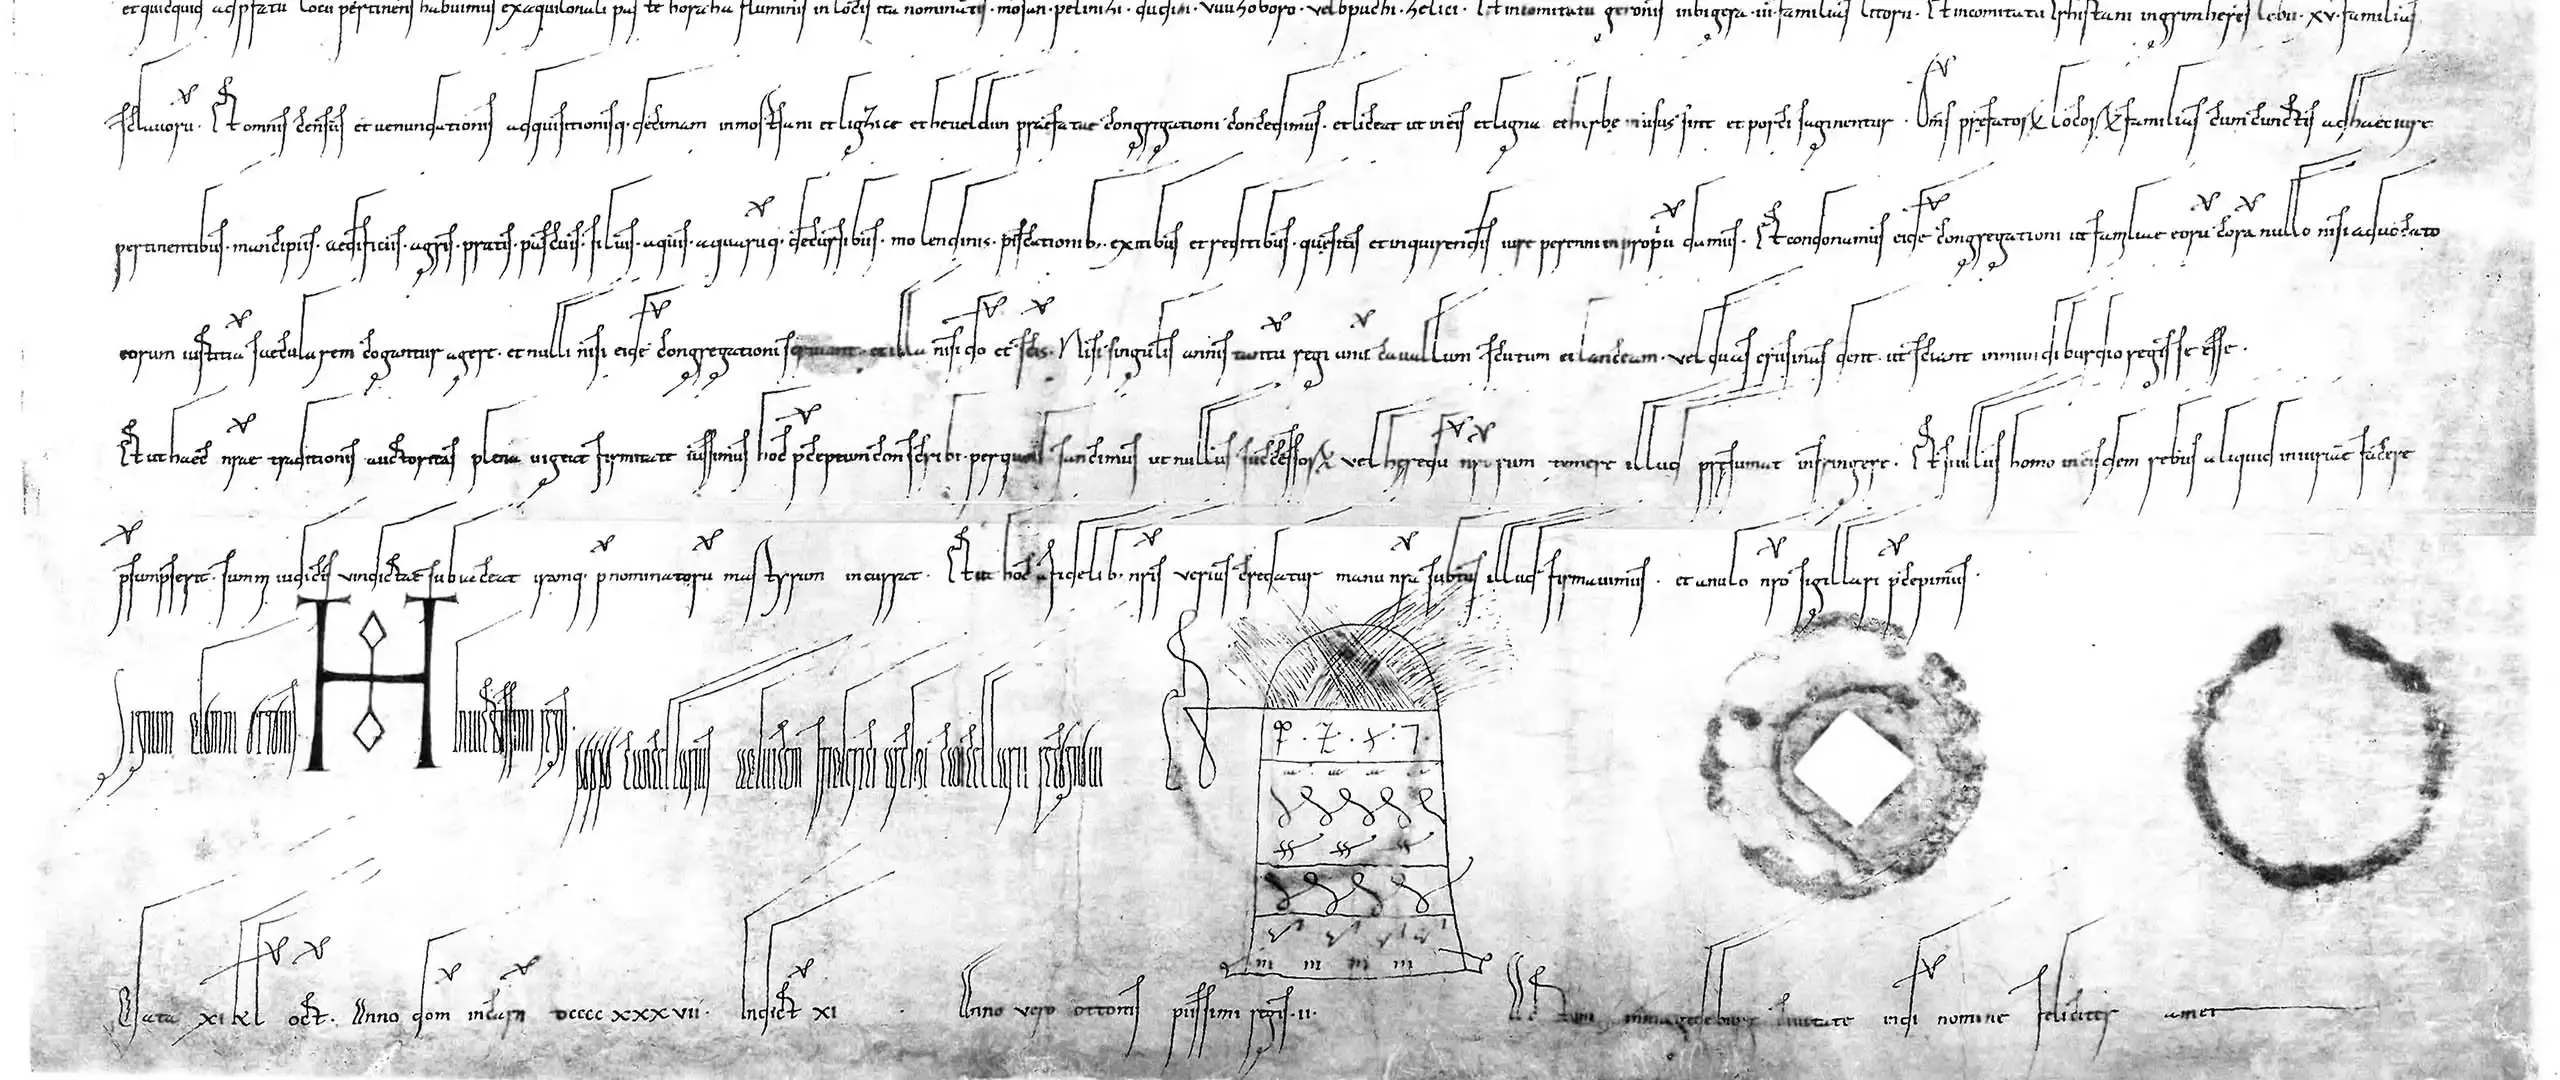 et quicquid ad p̄fatū locū pertinens habuimus ex aquilonali parte horaha fluminis in locis ita nominatis · mosan · pelinizi · Et in comitatu geronis in bigera · iii · familias litorū · Et in comitatu in grimhereslebu · xv · familias
sclavorū · Et omnis census et venundationis adquisitionisq; decimam in mostsani et ligzice et heveldun praefatae congregationi concedimus · et liceat ut in eis et ligna et herbe in usus sint et porci saginentur · Om̄s prefatorū locorū familias cum cunctis ad haec iure
pertinentibus · mancipiis · aedificiis · agris · pratis · pascuis · silvis · aquis · aquarūq; decursibus · molendinis · piscationib; · exitibus et reditibus · quesitis et inquirendis iure perenni in propriū damus · Et condonamus eidē congregationi ut familiae eorū corā nullo nisi advocato
eorum iustitiā secularem cogantur agere · et nulli nisi eidē congregationi serviant · et illa nisi dō et scīs · Nisi singulis annis tantū regi unū caballum scutum et lanceam · vel duas crusinas dent · ut sciant in mundiburdio regis se esse ·
Et ut haec nr̄ae traditionis auctoritas plenā vigeat firmitatē iussimus hoc p̄ceptum conscribi · per quod sancimus ut nullus successorū vel heredū nr̄orum temere illud presumat infringere · Et si ullus homo in eisdem rebus aliquid iniuriae facere
p̄sumpserit · summi iudicis vindictae subiaceat iramq; p̄nominatorū martyrum incurrat · Et ut hoc a fidelib; nr̄is verius credatur manu nr̄a subtus illud firmavimus · et anulo nr̄o sigillari p̄cepimus ·
Signum domni ottonis invictissimi regis
poppo cancellarius advicem fridurici archicancellarii recognovi
Data xi kl oct · Anno dom incarn dcccc xxxvii · Indict xi · Anno vero ottonis piissimi regis · ii · Actum in magadeburg civitate in dī nomine feliciter amen